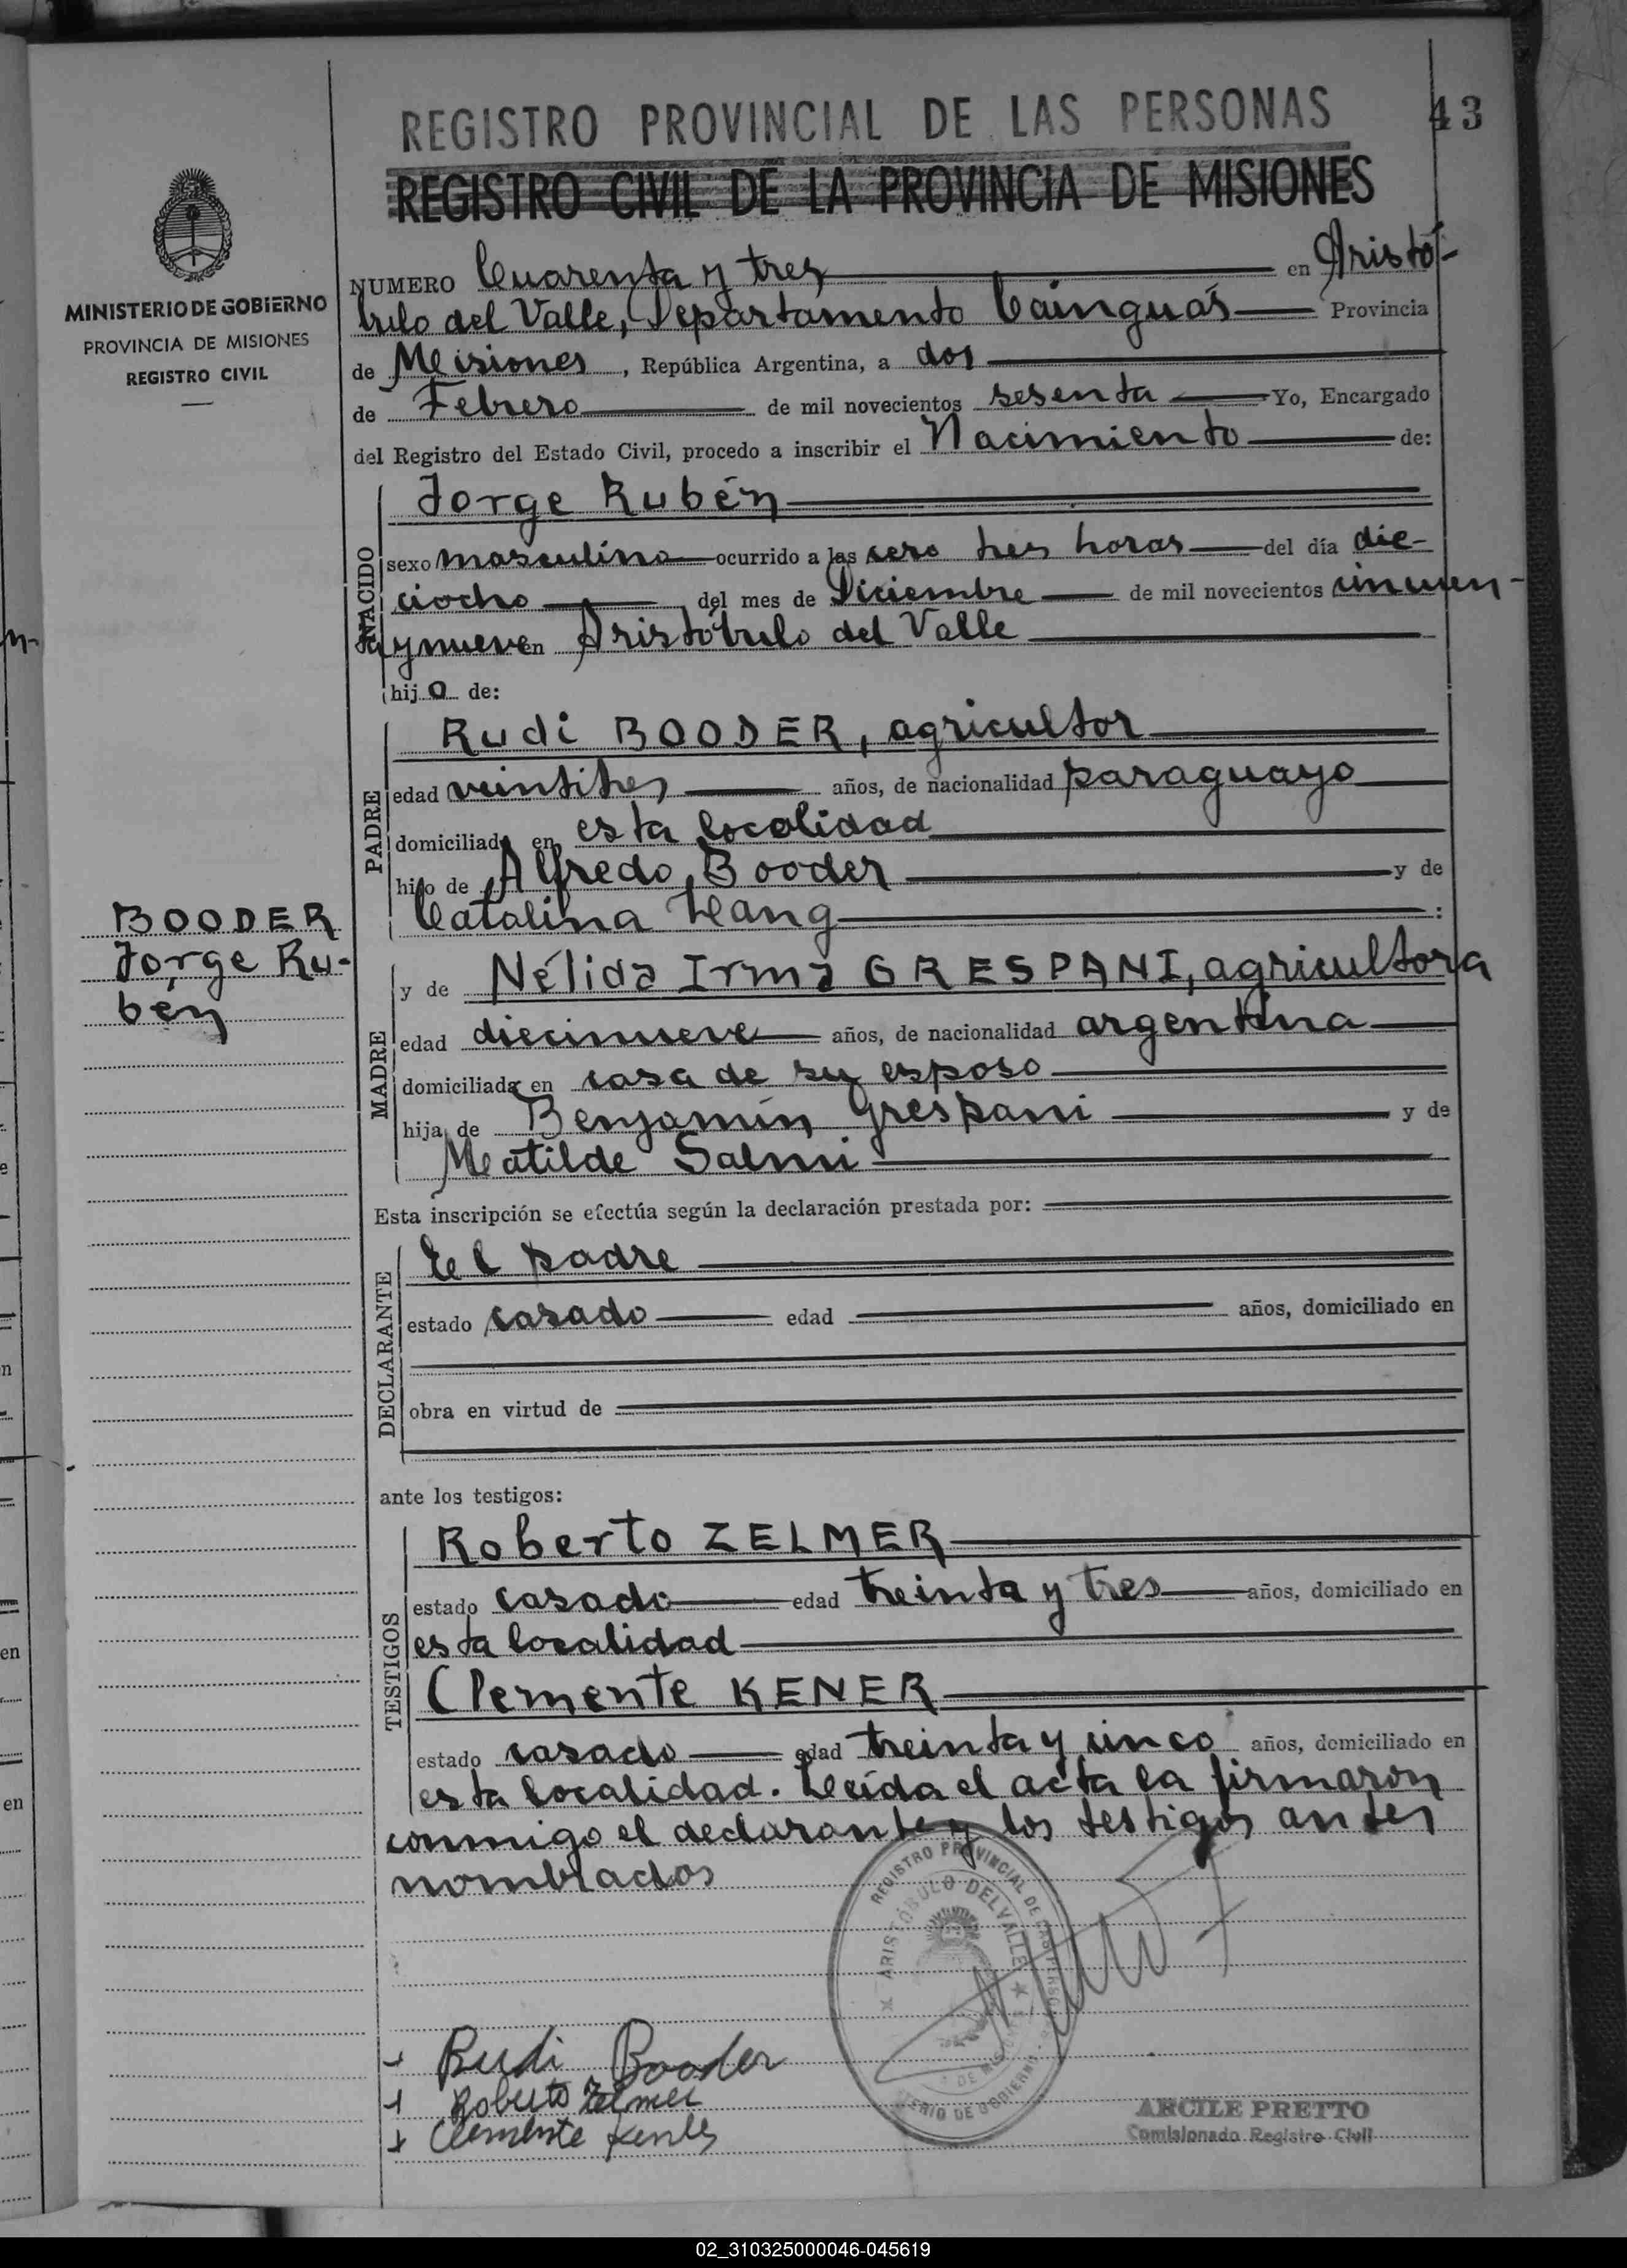 REGISTRO PROVINCIAL DE LAS PERSONAS
43
REGISTRO CIVIL DE LA PROVINCIA DE MISIONES
MINISTERIO DE GOBIERNO
PROVINCIA DE MISIONES
REGISTRO CIVIL
NUMERO Cuarenta y tres en Aristó-
bulo del Valle, Departamento Cainguás Provincia
de Misiones, República Argentina, a dos
de Febrero de mil novecientos sesenta Yo, Encargado
del Registro del Estado Civil, procedo a inscribir el Nacimiento de:
NACIDO
Jorge Rubén
sexo masculino ocurrido a las cero tres horas del día die-
ciocho del mes de Diciembre de mil novecientos cincuen-
ta y nueve en Aristóbulo del Valle
hijo de:
PADRE
Rudi BOODER, agricultor
edad veintitres años, de nacionalidad paraguayo
domiciliado en esta localidad
hijo de Alfredo Booder y de
Catalina Lang :
BOODER
Jorge Ru-
bén
MADRE
y de Nélida Irma GRESPANI, agricultora
edad diecinueve años, de nacionalidad argentina
domiciliada en casa de su esposo
hija de Benjamín Grespani y de
Matilde Salmi
Esta inscripción se efectúa según la declaración prestada por:
DECLARANTE
El padre
estado casado edad años, domiciliado en
obra en virtud de
ante los testigos:
TESTIGOS
Roberto ZELMER
estado casado edad treinta y tres años, domiciliado en
esta localidad
Clemente KENER
estado casado edad treinta y cinco años, domiciliado en
esta localidad. Leída el acta la firmaron
conmigo el declarante y los testigos antes
nombrados
REGISTRO PROVINCIAL DE LAS PERSONAS
ARISTÓBULO DEL VALLE
Rudi Booder
Roberto Zelmer
Clemente
ARCILE PRETTO
Comisionado Registro Civil
02_310325000046-045619